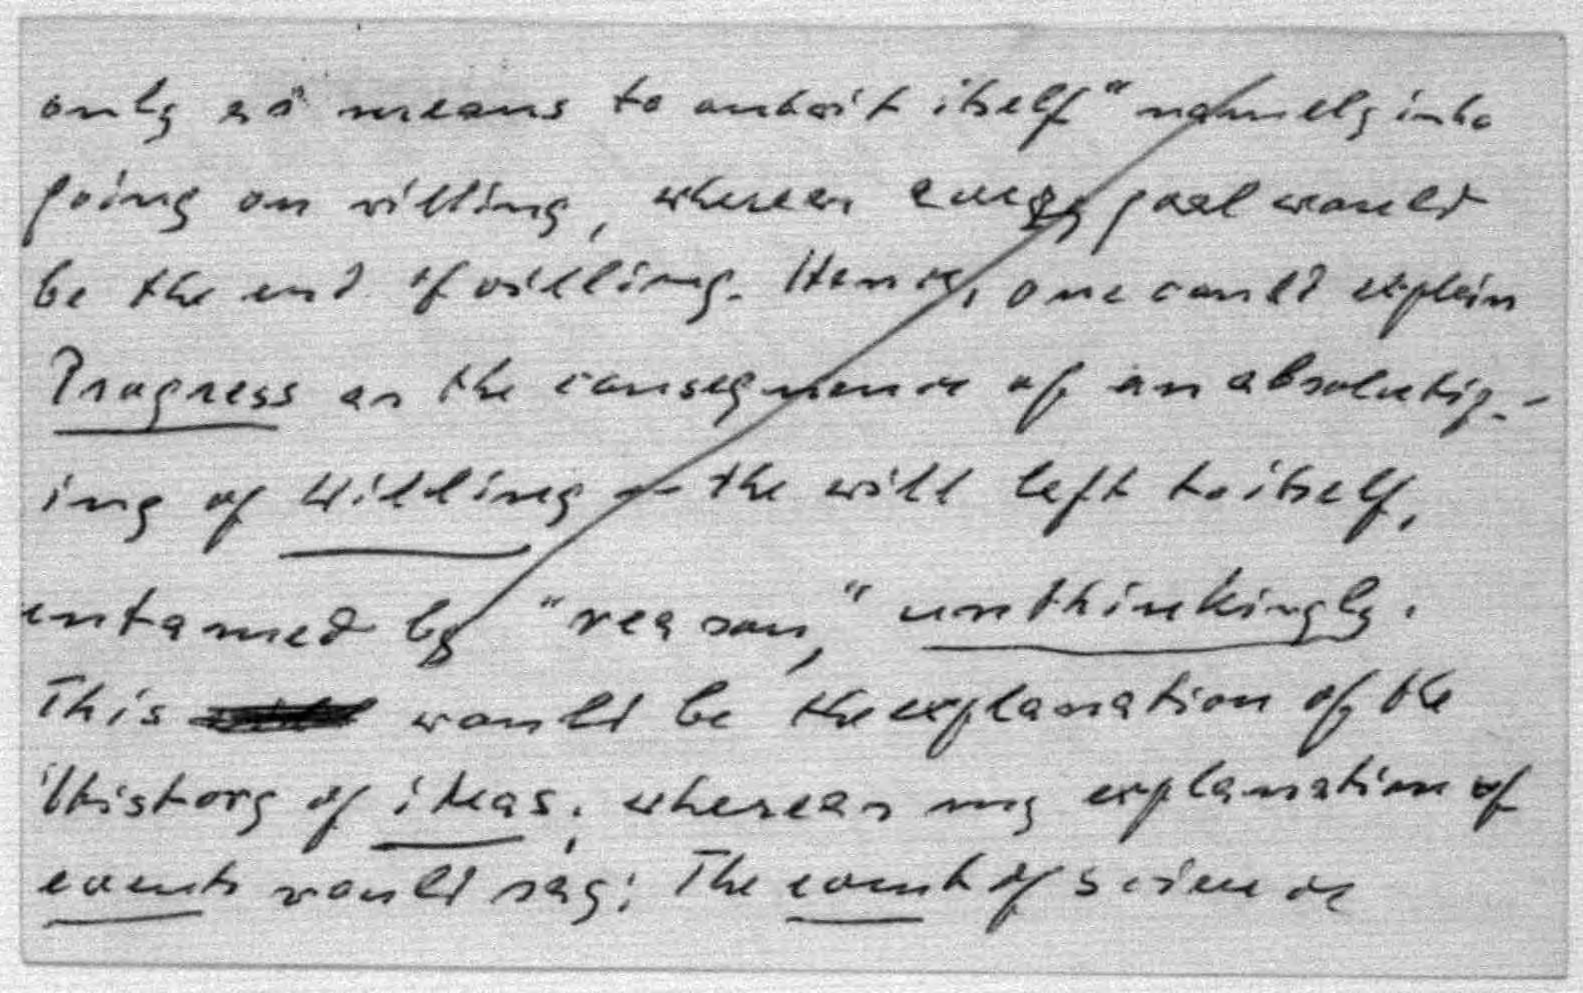 only as means to outwit itself" namely into
going on willing, whereas every goal would
be the end of willing. Hence, one could explain
Progress as the consequence of an absolutiz-
ing of Willing – the will left to itself,
untamed by "reason," unthinkingly.
This would be the explanation of the
History of ideas; whereas my explanation of
events would say: The event of science